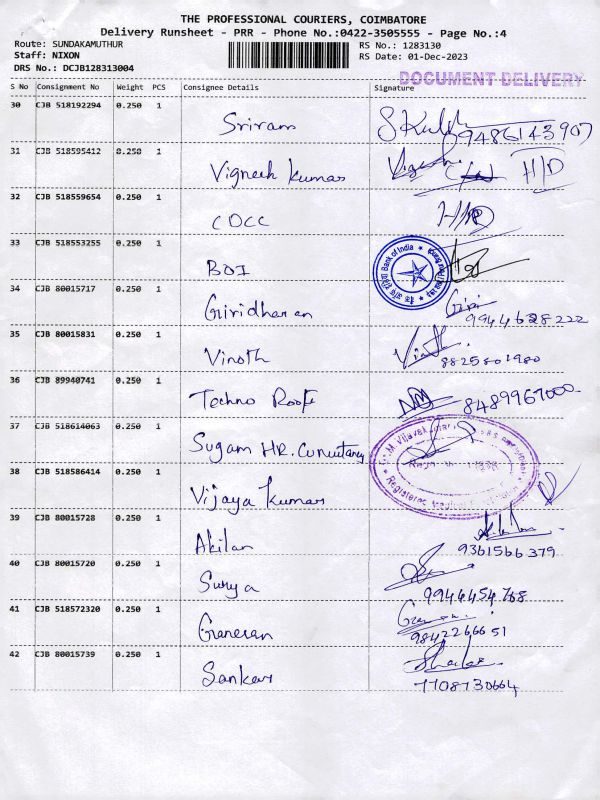 THE PROFESSIONAL COURIERS, COIMBATORE
Delivery Runsheet - PRR - Phone No.:0422-3505555 - Page No.:4
Route: SUNDAKAMUTHUR
Staff: NIXON
DRS No.: DCJB128313004
RS No.: 1283130
RS Date: 01-Dec-2023
DOCUMENT DELIVERY
S No Consignment No Weight PCS Consignee Details Signature
30 CJB 518192294 0.250 1 Sriram 9486143907
31 CJB 518595412 0.250 1 Vignesh Kumar H/D
32 CJB 518559654 0.250 1 CDCC
33 CJB 518553255 0.250 1 BOI
Bank of India
34 CJB 80015717 0.250 1 Giridharan Giri
9944628222
35 CJB 80015831 0.250 1 Vinoth
8825801980
36 CJB 89940741 0.250 1 Techno Roofs 8489967000
37 CJB 518614063 0.250 1 Sugam HR.
38 CJB 518586414 0.250 1 Vijaya Kumar
39 CJB 80015728 0.250 1 Akilan
9361566379
40 CJB 80015720 0.250 1 Surya
9944454768
41 CJB 518572320 0.250 1 Ganesan
9842266651
42 CJB 80015739 0.250 1 Sankar
7708730664